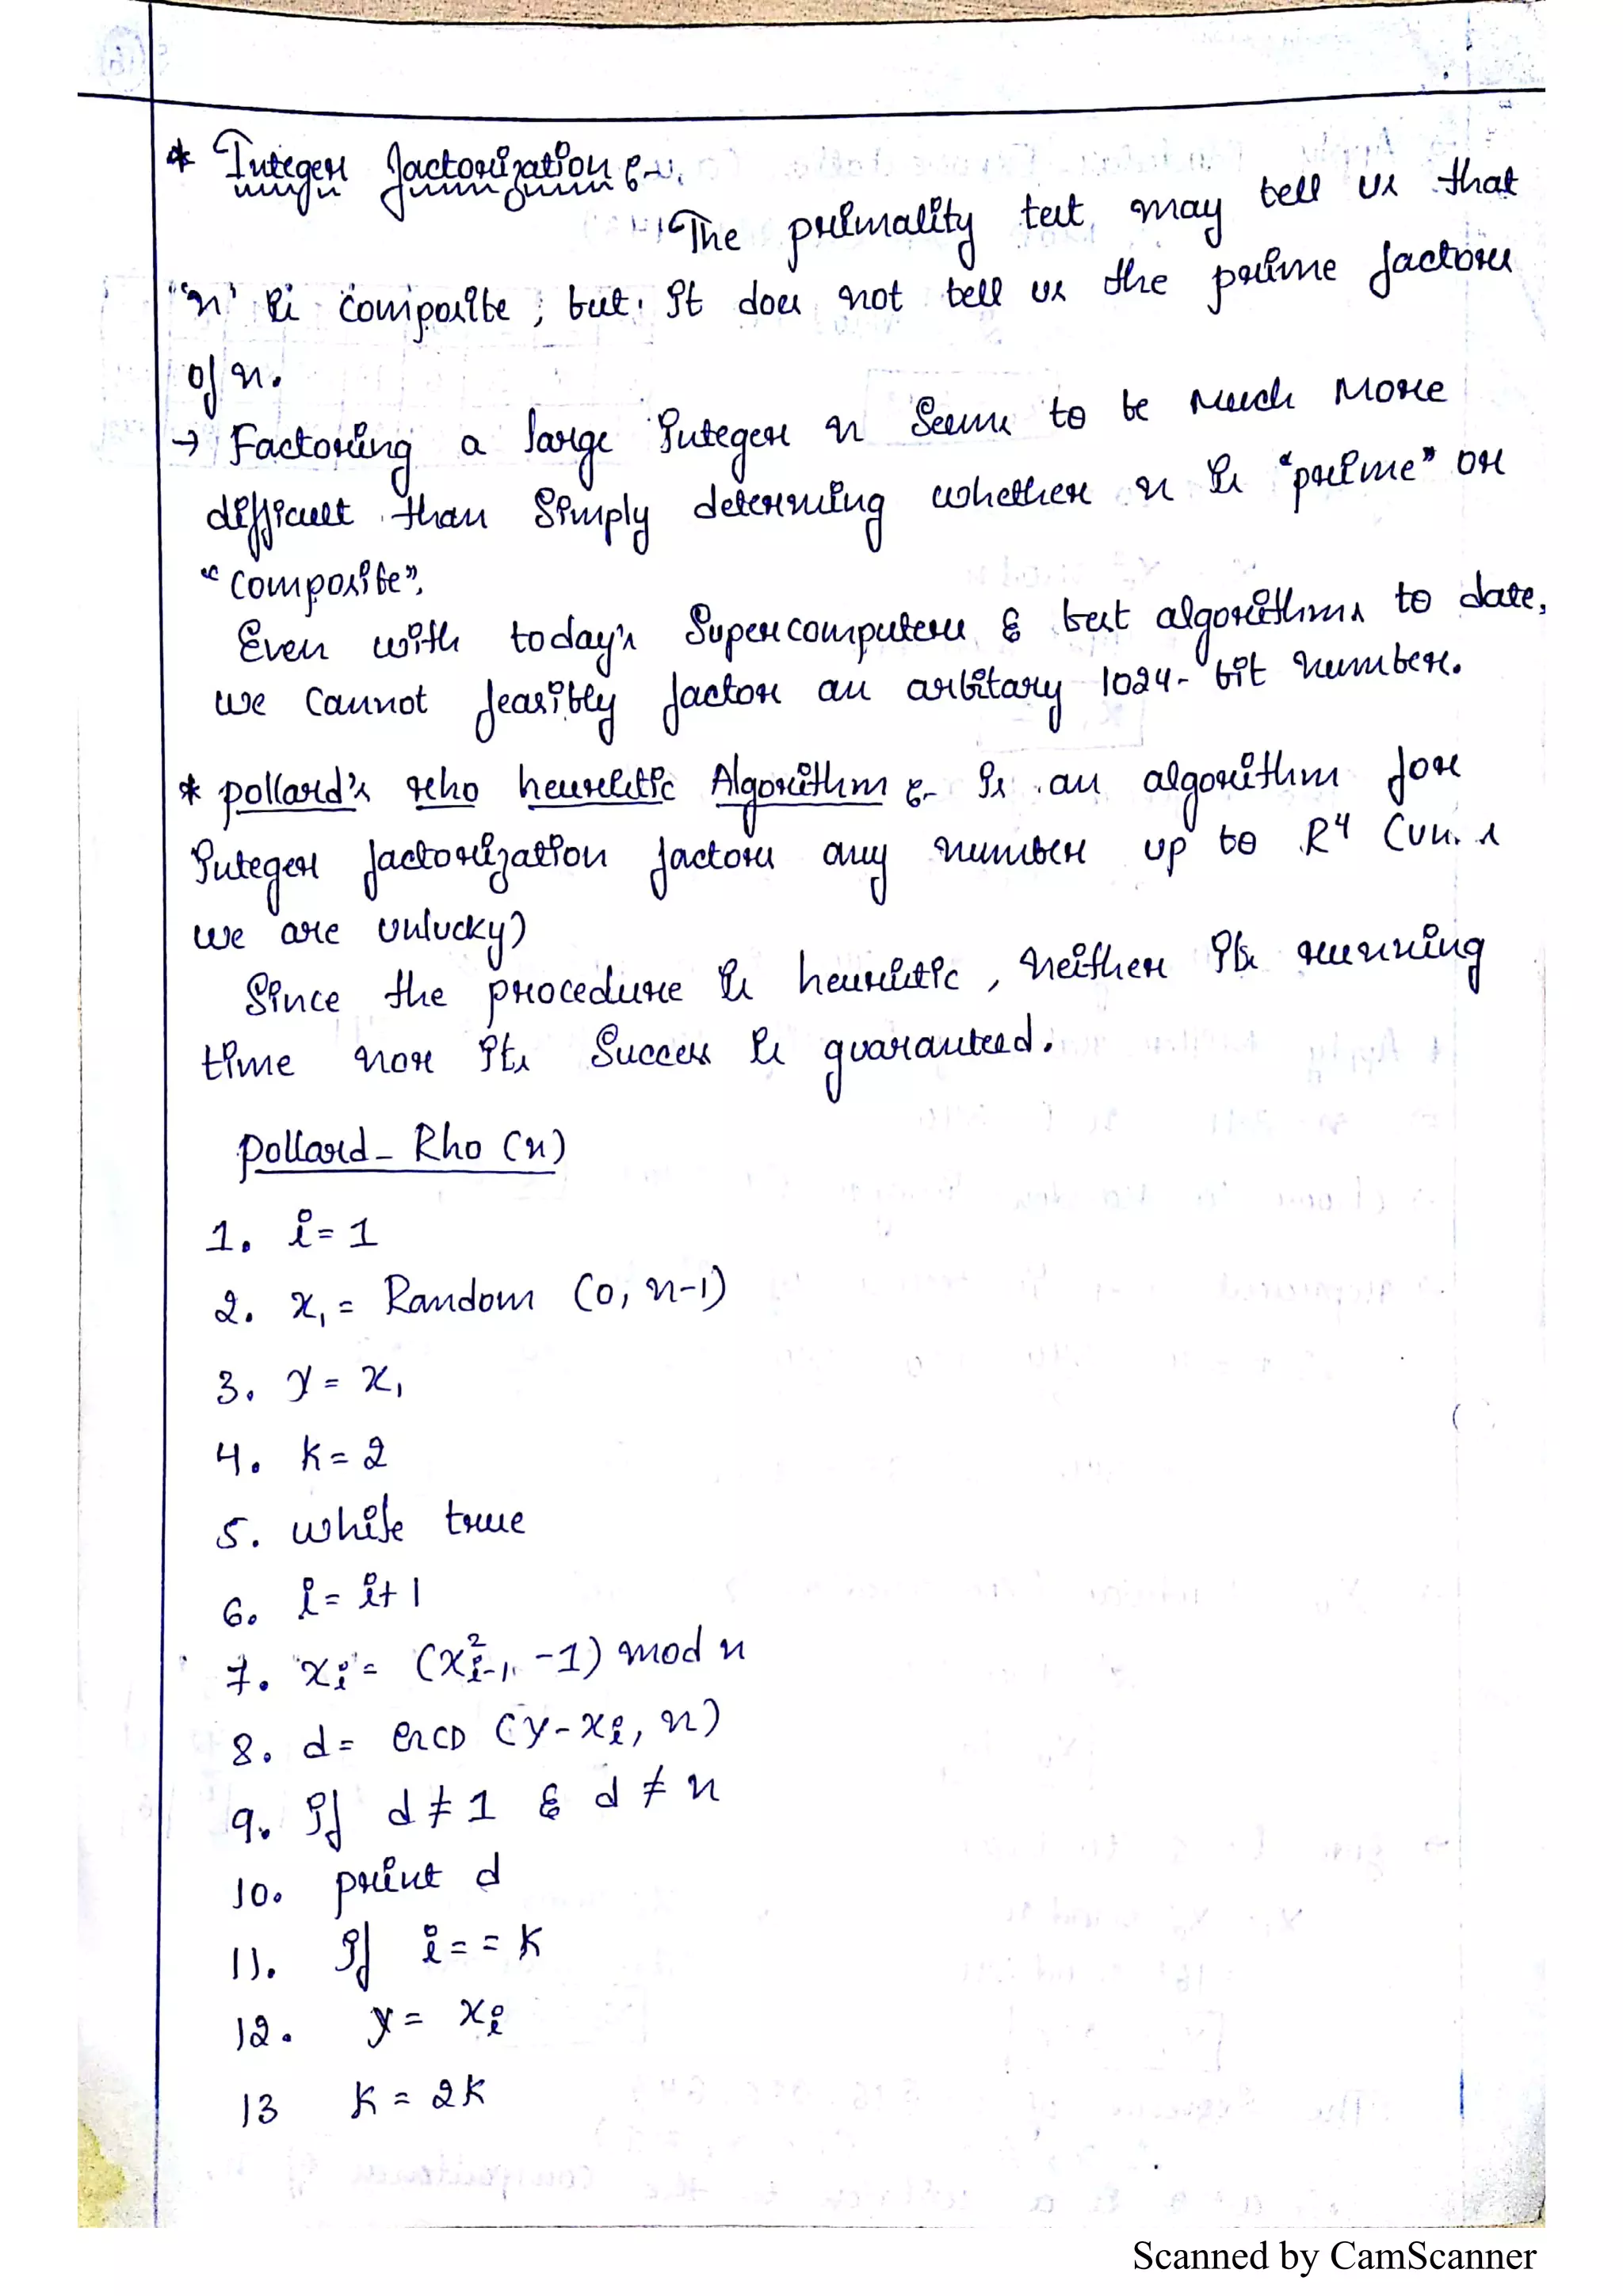 * Integer factorization :-
The primality test may tell us that
"n' is composite; but it does not tell us the prime factors
of n.
→ Factoring a large integer n seems to be much more
difficult than simply determing whether n is "prime" or
"composite".
Even with today's supercomputers & best algorithms to date,
we cannot feasibly factor an arbitary 1024-bit number.
* pollard's rho heuristic Algorithm :- Is an algorithm for
integer factorization factors any number up to R⁴
we are unlucky)
Since the procedure is heuristic, neither its running
time nor its success is guaranteed.
pollard_Rho (n)
1. i = 1
2. x₁ = Random (0, n-1)
3. y = x₁
4. k = 2
5. while true
6. i = i+1
7. xᵢ = (x²ᵢ₋₁ -1) mod n
8. d = GCD (y-xᵢ, n)
9. If d ≠ 1 & d ≠ n
10. print d
11. If i == k
12. y = xᵢ
13 k = 2k
Scanned by CamScanner